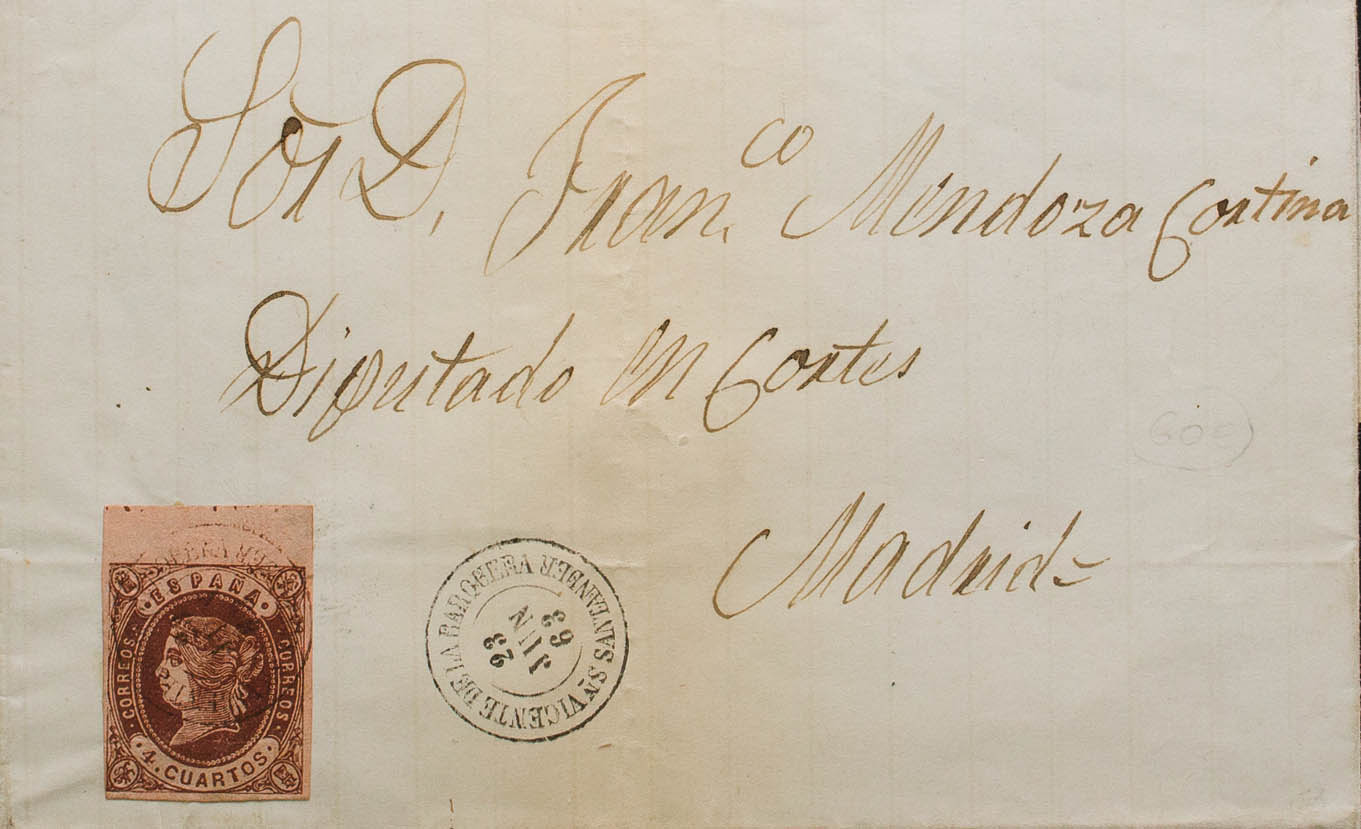 Sor D. Fran.co Mendoza Cortina
Diputado en Cortes
Madrid
600
ESPAÑA
CORREOS CORREOS
4. CUARTOS
Sn VICENTE DE LA BARQUERA SANTANDER
23
JUN
63